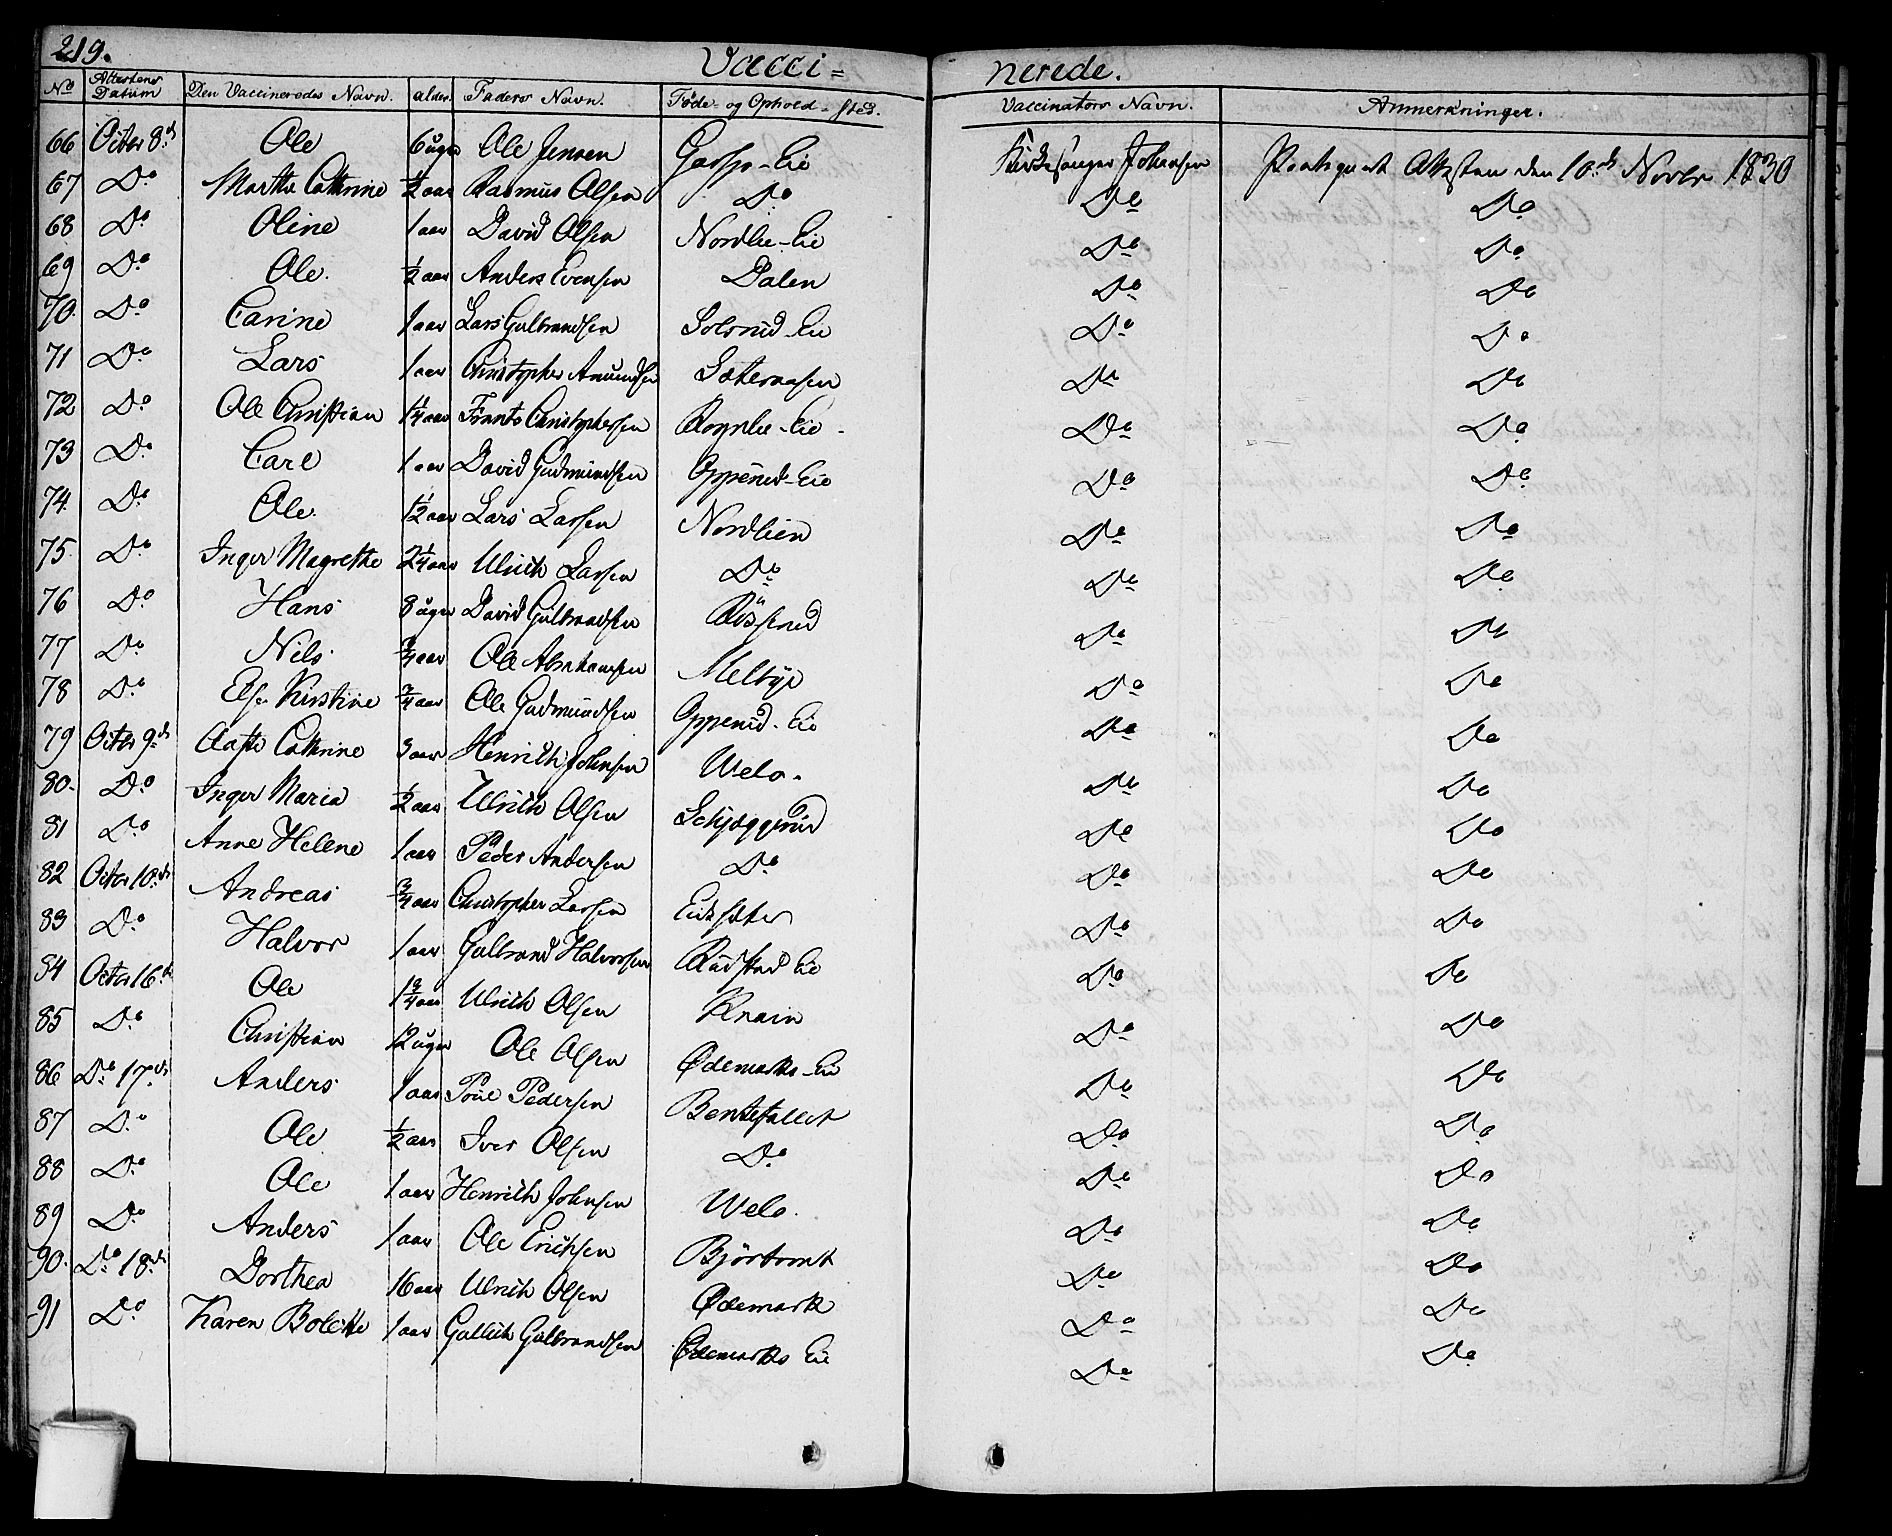 219.
Vacci= nerede.
No Attestens Datum Den Vaccineredes Navn. alder. Faders Navn. Føde- og Ophold-sted. Vaccinators Navn. Anmerkninger.
66 Octbr 8de Ole 6 uger Ole Jensen Gaspo-Eie Kirkesanger Johansen Protsqueret Attesten den 10de Novbr 1830
67 Do Marthe Cathrine ½ aar Rasmus Olsen Do Do Do
68 Do Oline 1 aar David Olsen Nordlie-Eie Do Do
69 Do Ole ½ aar Anders Evensen Dalen Do Do
70. Do Carine 1 aar Lars Gulbrandsen Solsrud-Eie Do Do
71 Do Lars 1 aar Christopher Amundsen Sæteraasen Do Do
72 Do Ole Christian 1¼ aar Frants Christophersen Rognlie-Eie Do Do
73 Do Carl 1 aar David Gudmundsen Opperud-Eie Do Do
74. Do Ole 1½ aar Lars Larsen Nordlien Do Do
75. Do Inger Magrethe 2¼ aar Ulrich Larsen Do Do Do
76 Do Hans 8 uger David Gulbrandsen Røsserud Do Do
77 Do Nils ¾ aar Ole Abrahamsen Meltýe Do Do
78 Do Else Kirstine ¾ aar Ole Gudmundsen Oppерud-Eie Do Do
79 Octbr 9de Aaste Cathrine 3 aar Henrich Johnsen Welo. Do Do
80. Do Inger Maria ½ aar Ulrich Olsen Schjæggerud Do Do
81 Do Anne Helene 1 aar Peder Andersen Do Do Do
82 Octbr 10de Andreas ¾ aar Christopher Larsen Eiksæter Do Do
83 Do Halvor 1 aar Gulbrand Halvorsen Rudstad Eie Do Do
84 Octbr 16de Ole 1¾ aar Ulrich Olsen Knain Do Do
85 Do Christian 12 uger Ole Olsen Ødemarks-Eie Do Do
86 Do 17de Anders 1 aar Poul Pedersen Bentefallet Do Do
87 Do Ole ½ aar Iver Olsen Do Do Do
88 Do Ole 1 aar Henrich Johnsen Welo. Do Do
89 Do Anders 1 aar Ole Erichsen Bjørtomt Do Do
90. Do 18de Dorthea 16 aar Ulrich Olsen Ødemark Do Do
91 Do Karen Bolette 1 aar Gullich Gulbrandsen Ødemarks Eie Do Do